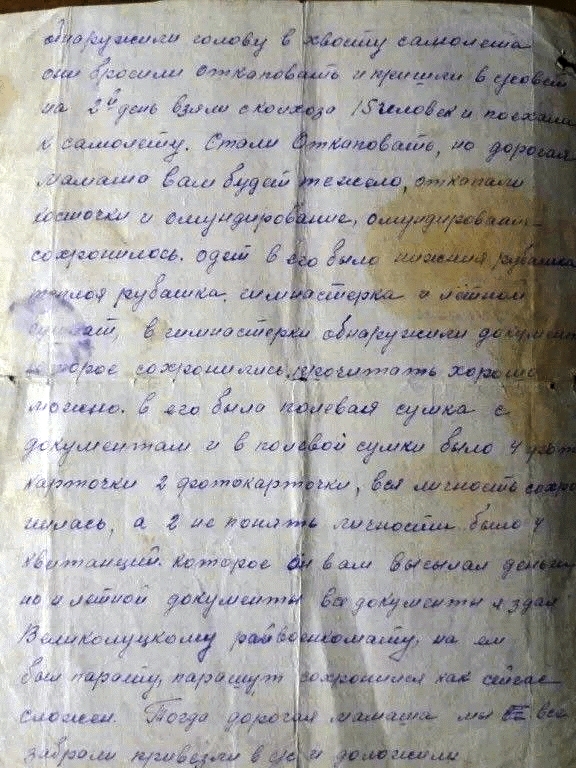 обнаружили голову в хвосту самолета
они бросили откаповать и пришли в с/совет
на 2й день взяли с колхоза 15 человек и поехали
к самолету. Стали Откаповать, но дорогая
мамаша вам будет тежело, откапали
косточки и смундирование, омундирование
сохронилось. одет в его было нижния рубашка
теплоя рубашка, гимнастерка и лётном
в гимнастерки обнаружили документ
которое сохронились, прочитать хорошо
можно. в его была полевая сумка с
документам и в полевой сумки было 4 фото
карточки 2 фотокарточки, вся личность сохро
нилась, а 2 не понять личности было 4
квитанций. которое он вам высылал деньги
но и летной документы все документы я здал
Великолуцкому райвоенкомату, на ем
был парашут, парашут сохронился как сейчас
сложен. Тогда дорогая мамаша мы все
забрали привезли в с/с и доложили